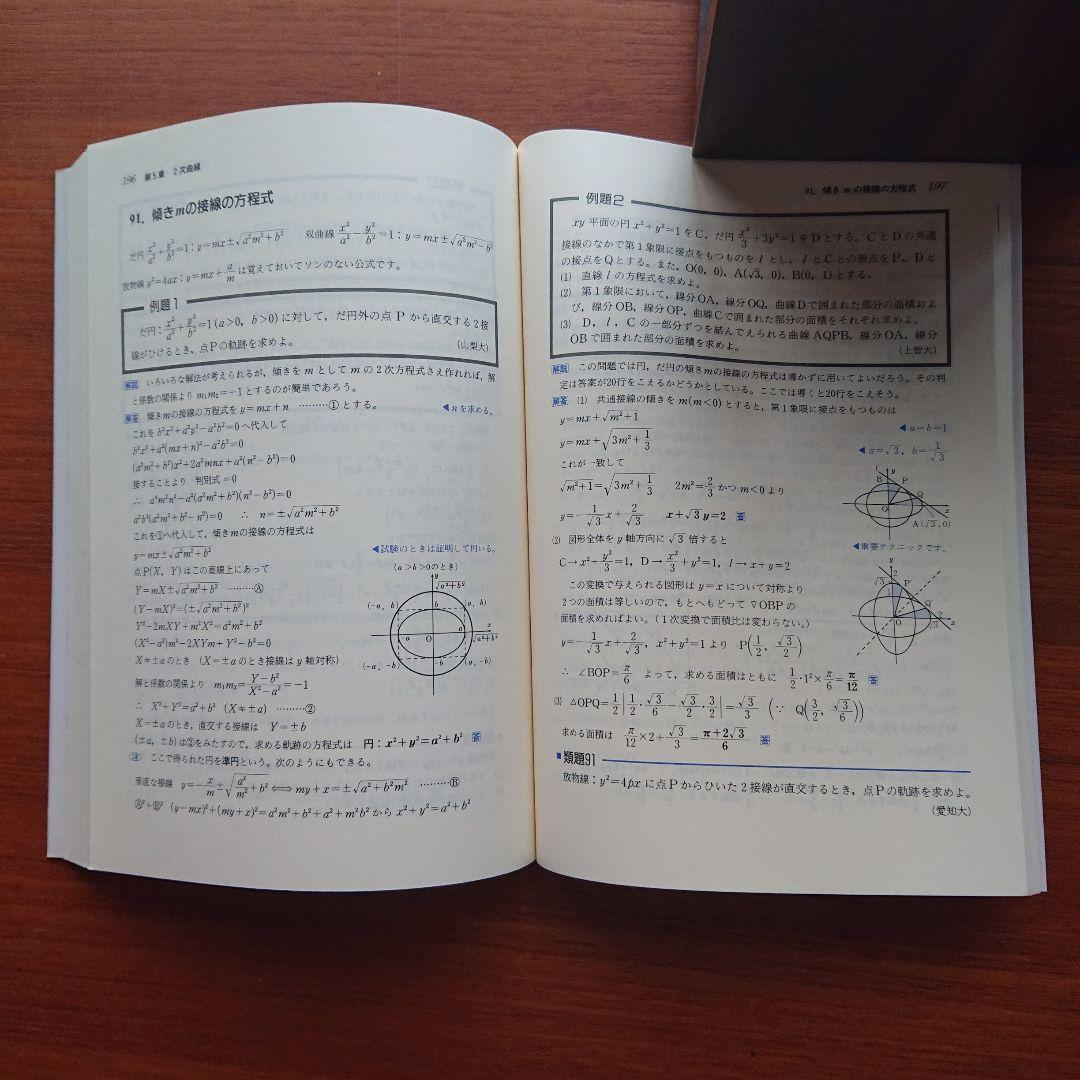 196 第5章 2次曲線
91. 傾きmの接線の方程式
だ円 x²/a²+y²/b²=1 ; y=mx±√(a²m²+b²) 双曲線 x²/a²−y²/b²=1 ; y=mx±√(a²m²−b²)
放物線 y²=4ax ; y=mx+a/m は覚えておいてソンのない公式です。
例題1
だ円 ; x²/a²+y²/b²=1 (a>0, b>0) に対して，だ円外の点Pから直交する2接
線がひけるとき，点Pの軌跡を求めよ。 (山梨大)
解説 いろいろな解法が考えられるが，傾きをmとしてmの2次方程式さえ作れれば，解
と係数の関係より m₁m₂=−1 とするのが簡単であろう。
解答 傾きmの接線の方程式を y=mx+n ………①とする。 ◀nを求める。
これを b²x²+a²y²−a²b²=0 へ代入して
b²x²+a²(mx+n)²−a²b²=0
(a²m²+b²)x²+2a²mnx+a²(n²−b²)=0
接することより 判別式=0
∴ a⁴m²n²−a²(a²m²+b²)(n²−b²)=0
a²b²(a²m²+b²−n²)=0 ∴ n=±√(a²m²+b²)
これを①へ代入して，傾きmの接線の方程式は
y=mx±√(a²m²+b²) ◀試験のときは証明して用いる。
点P(X, Y)はこの直線上にあって (a>b>0のとき)
Y=mX±√(a²m²+b²) ………Ⓐ
(Y−mX)²=(±√(a²m²+b²))²
Y²−2mXY+m²X²=a²m²+b²
(X²−a²)m²−2XYm+Y²−b²=0
X≠±aのとき (X=±aのとき接線はy軸対称)
解と係数の関係より m₁m₂=(Y²−b²)/(X²−a²)=−1
∴ X²+Y²=a²+b² (X≠±a) ………②
X=±aのとき，直交する接線は Y=±b
(±a, ±b)は②をみたすので，求める軌跡の方程式は 円 : x²+y²=a²+b² 答
注 ここで得られた円を準円という。次のようにもできる。
垂直な接線 y=−x/m±√(a²/m²+b²) ⟺ my+x=±√(a²+b²m²) ………Ⓑ
Ⓐ²+Ⓑ² (y−mx)²+(my+x)²=a²m²+b²+a²+m²b² から x²+y²=a²+b²
y
√(a²+b²)
(−a, b)
(a, b)
b
a
O
a
x
√(a²+b²)
b
(−a, −b)
(a, −b)
91. 傾きmの接線の方程式 197
例題2
xy平面の円 x²+y²=1 をC，だ円 x²/3+3y²=1 をDとする。CとDの共通
接線のなかで第1象限に接点をもつものを l とし，l とCとの接点をP，Dと
の接点をQとする。また，O(0, 0)，A(√3, 0)，B(0, 1)とする。
(1) 直線 l の方程式を求めよ。
(2) 第1象限において，線分OA，線分OQ，曲線Dで囲まれた部分の面積およ
び，線分OB，線分OP，曲線Cで囲まれた部分の面積をそれぞれ求めよ。
(3) D，l，Cの一部分ずつを結んでえられる曲線AQPB，線分OA，線分
OBで囲まれた部分の面積を求めよ。 (上智大)
解説 この問題では円，だ円の傾きmの接線の方程式は導かずに用いてよいだろう。その判
定は答案が20行をこえるかどうかとしている。ここでは導くと20行をこえそう。
解答 (1) 共通接線の傾きをm(m<0)とすると，第1象限に接点をもつものは
y=mx+√(m²+1) ◀a=b=1
y=mx+√(3m²+1/3) ◀a=√3, b=1/√3
これが一致して
√(m²+1)=√(3m²+1/3) 2m²=2/3 かつ m<0 より
y=−1/√3 x+2/√3 x+√3 y=2 答
(2) 図形全体をy軸方向に√3倍すると ◀重要テクニックです。
C→x²+y²/3=1, D→x²/3+y²=1, l→x+y=2
この変換で与えられる図形は y=x について対称より
2つの面積は等しいので，もとへもどって▽OBPの
面積を求めればよい。(1次変換で面積比は変わらない。)
y=−1/√3 x+2/√3, x²+y²=1 より P(1/2, √3/2)
∴ ∠BOP=π/6 よって，求める面積はともに 1/2・1²×π/6=π/12 答
(3) △OPQ=1/2|1/2・√3/6−√3/2・3/2|=√3/3 (∵ Q(3/2, √3/6))
求める面積は π/12×2+√3/3=(π+2√3)/6 答
y
B
P
Q
A(√3, 0)
y
√3
P′
Q′
O
√3
x
類題91
放物線 ; y²=4px に点Pからひいた2接線が直交するとき，点Pの軌跡を求めよ。
(愛知大)